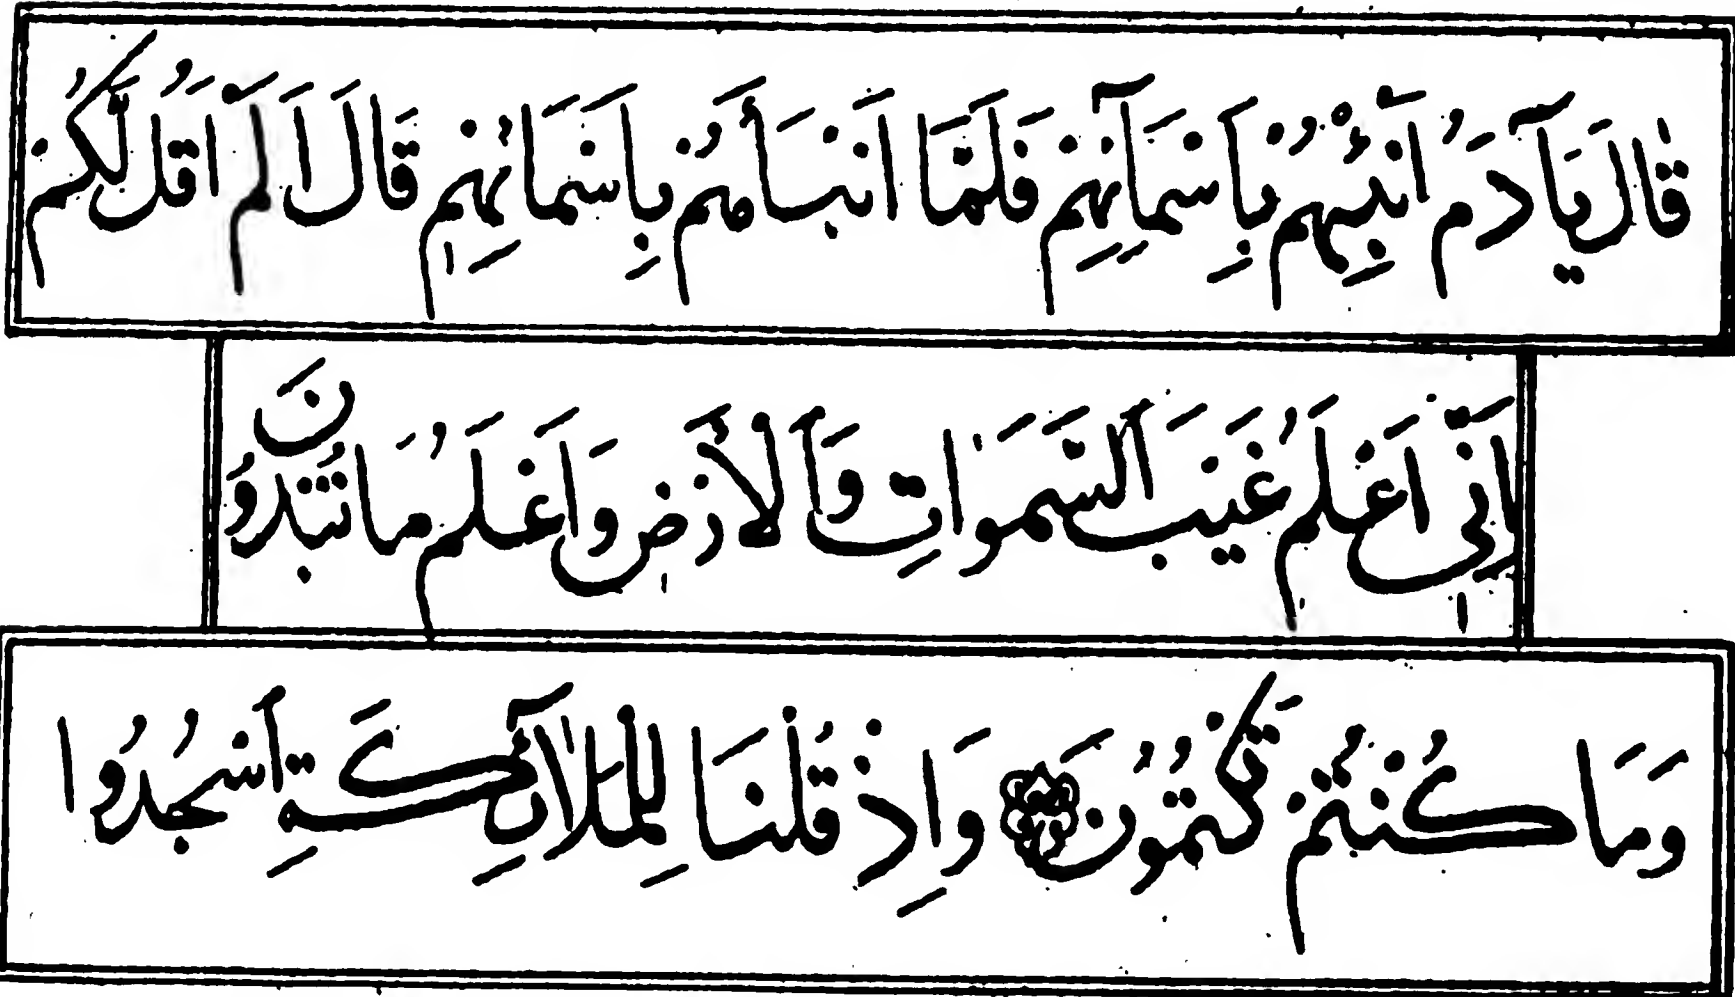 قَالَ يَآ اٰدَمُ اَنْبِئْهُمْ بِاَسْمَآئِهِمْ فَلَمَّا اَنْبَأَهُمْ بِاَسْمَائِهِمْ قَالَ اَلَمْ اَقُلْ لَكُمْ
اِنِّي اَعْلَمُ غَيْبَ السَّمَوَاتِ وَالْأَرْضِ وَاَعْلَمُ مَا تُبْدُونَ
وَمَا كُنْتُمْ تَكْتُمُونَ وَاِذْ قُلْنَا لِلْمَلَآئِكَةِ اسْجُدُوا